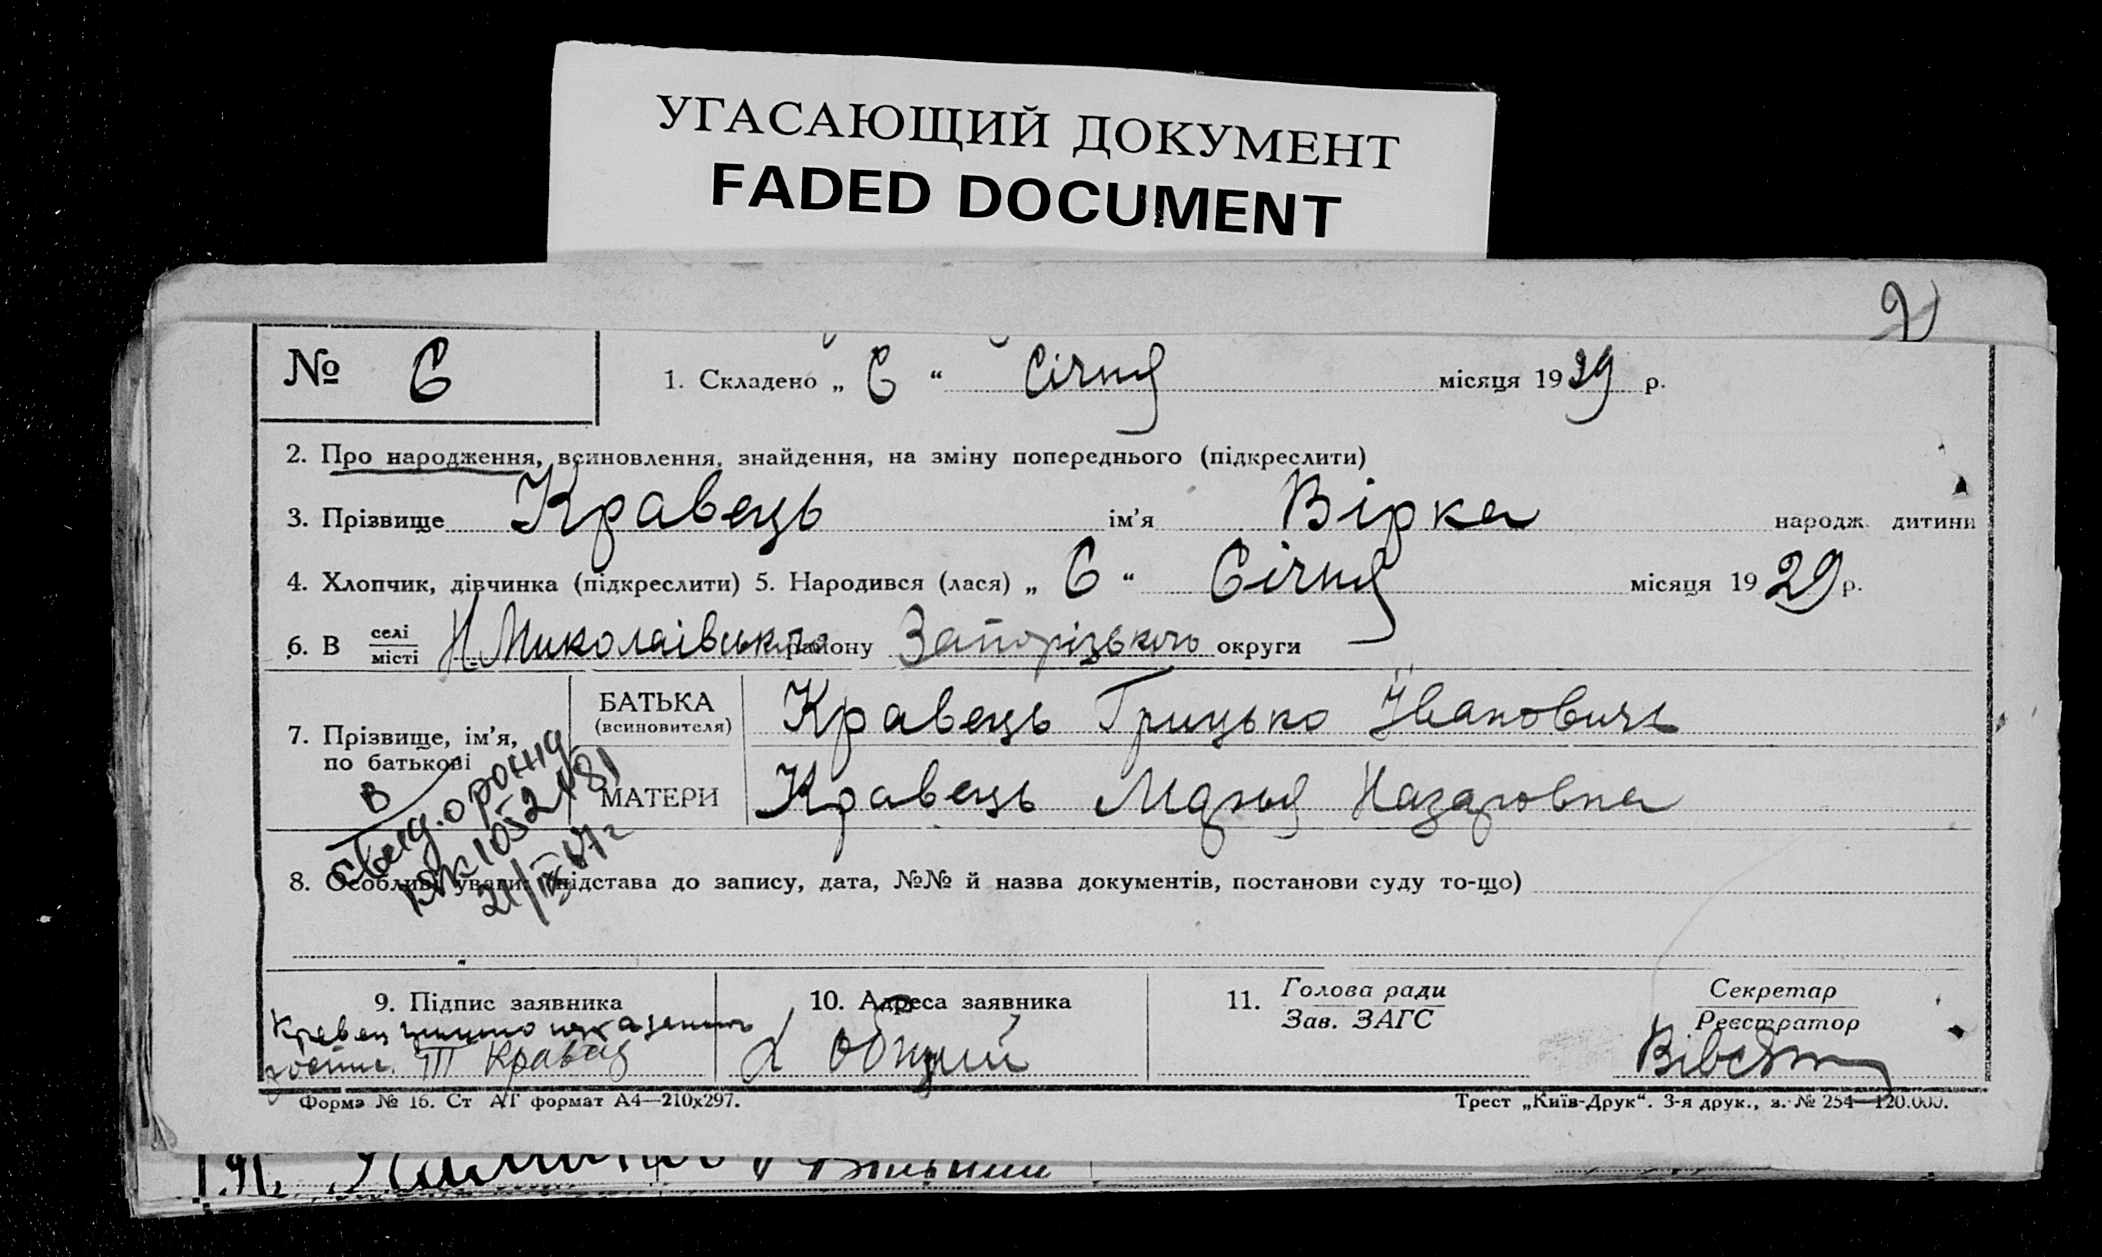 УГАСАЮЩИЙ ДОКУМЕНТ
FADED DOCUMENT
2
№ 6
1. Складено „ 6 “ Січня місяця 1929 р.
2. Про народження, всиновлення, знайдення, на зміну попереднього (підкреслити)
3. Прізвище Кравець ім'я Вірка народж. дитини
4. Хлопчик, дівчинка (підкреслити) 5. Народився (лася) „ 6 “ Січня місяця 1929 р.
6. В селі місті Н. Миколаівського району Запорізького округи
7. Прізвище, ім'я, по батькові
БАТЬКА (всиновителя) Кравець Грицько Іванович
МАТЕРИ Кравець Мар'я Назаровна
В
свид. о рожд
1052181
21/IX 47 г
8. Особливі уваги: (підстава до запису, дата, №№ й назва документів, постанови суду то-що)
9. Підпис заявника
Кравец
Кравец
10. Адреса заявника
11. Голова ради
Зав. ЗАГС
Секретар
Реєстратор
Форма № 16. Ст АҐ формат А4—210х297.
Трест „Київ-Друк“. 3-я друк., з. № 254—120.000.